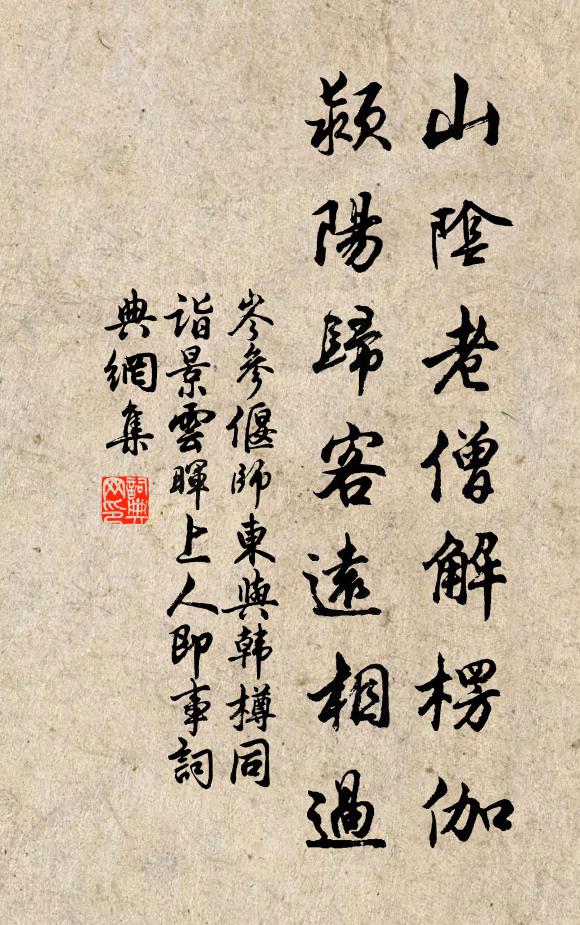 山陰老僧解楞伽
潁陽歸客遠相過
岑參偃師東與韓樽同
詣景雲暉上人即事詞
典網集
詞典
网印